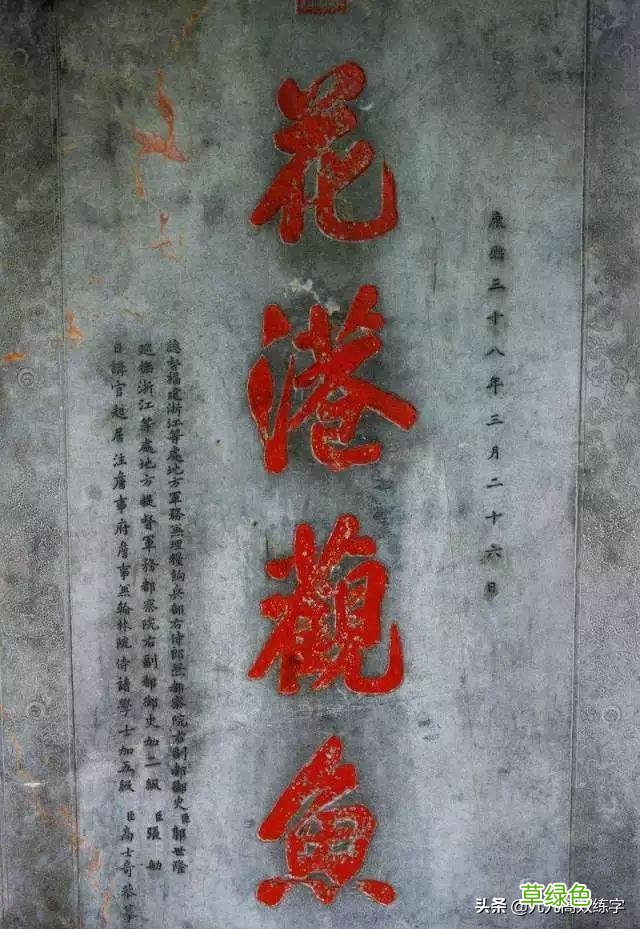 康熙三十八年三月二十六日
花港觀魚
總督福建浙江等處地方軍務兼理糧餉兵部右侍郎兼都察院右副都御史臣郭世隆
巡撫浙江等處地方提督軍務都察院右副都御史加一級 臣張勄
日講官起居注詹事府詹事兼翰林院侍讀學士加五級 臣高士奇恭摹
草绿色
头条 @九九高效练字